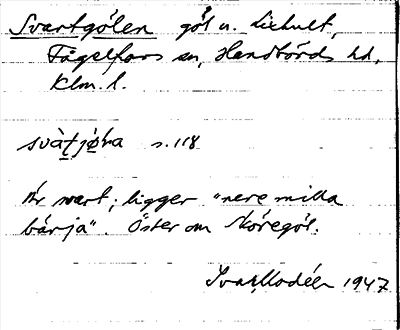 Svartgölen göl u. Lixhult,
Fågelfors sn, Handbörds hd,
Klm. l.
svàtjø̀ra s. 118
Är svart; ligger "nere milla
bärja". Öster om Sköregöl.
Ivar Modéer 1947